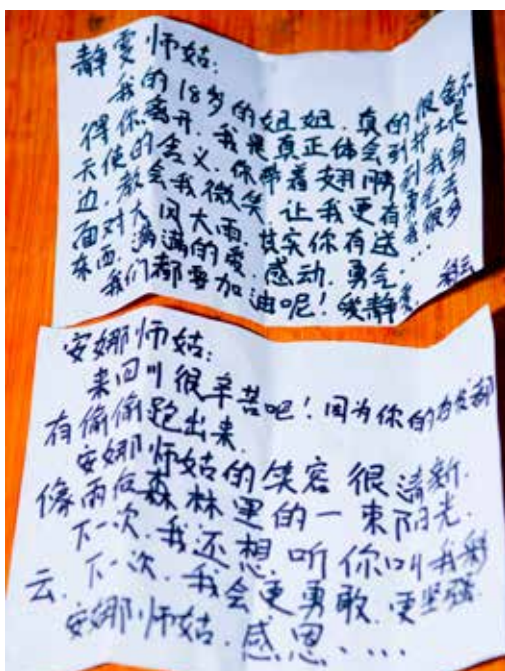 静雯师姑：
我的18岁的姐姐．真的很舍不
得你离开．我是真正体会到护士是
天使的含义．你带着翅膀到我身
边．教会我微笑．让我更有勇气去
面对大风大雨．其实你有送我很多
东西．满满的爱．感动．勇气．．．
我们都要加油呢！ 静雯． 彩云
安娜师姑：
来回叫很辛苦吧！因为你的白发都
有偷偷跑出来．
安娜师姑的笑容很清新．
像雨后森林里的一束阳光．
下一次．我还想听你叫我彩
云．下一次．我会更勇敢．更坚强．
安娜师姑．感恩．．．．